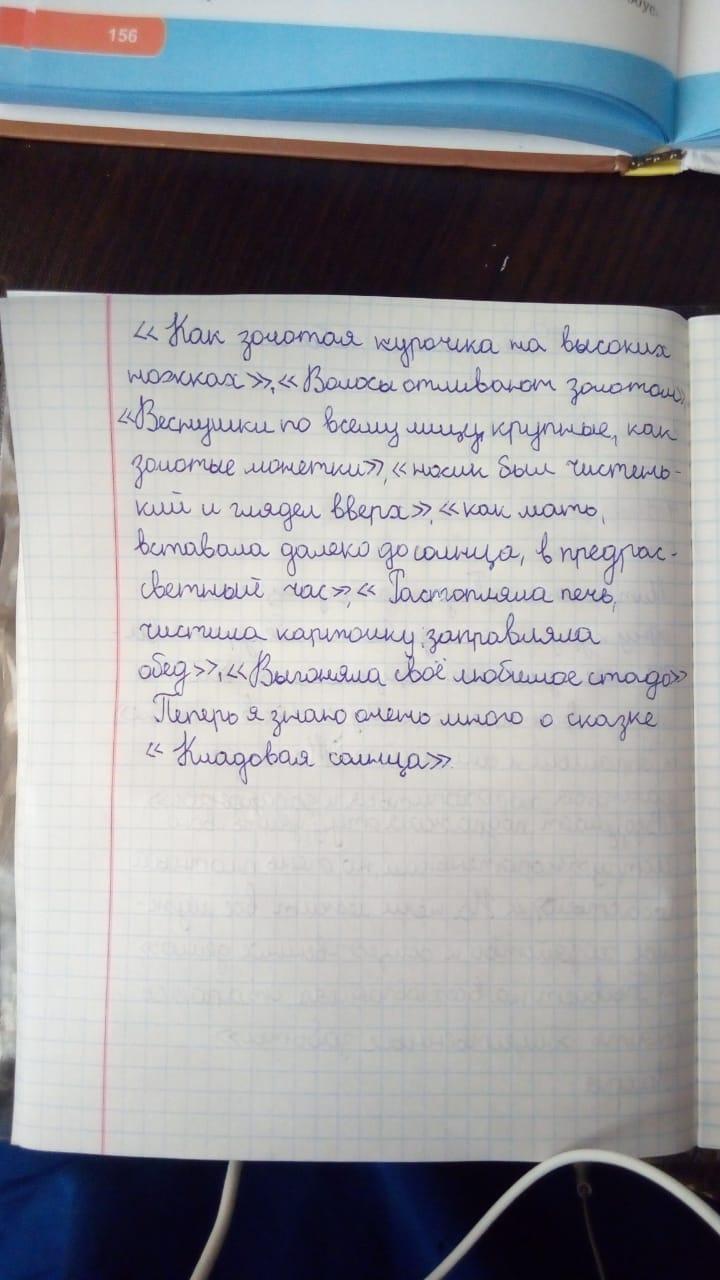 156
« Как золотая курочка на высоких
ножках», «Волосы отливают золотом»,
«Веснушки по всему лицу, крупные, как
золотые монетки», «носик был чистень-
кий и глядел вверх», «как мать,
вставала далеко до солнца, в предрас-
светный час», « Растопляла печь,
чистила картошку, заправляла
обед», «Выгоняла своё любимое стадо»
Теперь я знаю очень много о сказке
« Кладовая солнца».